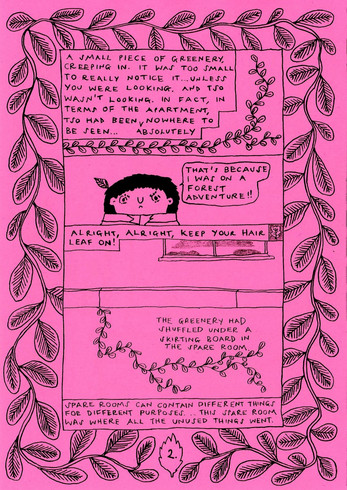 A SMALL PIECE OF GREENERY,
CREEPING IN. IT WAS TOO SMALL
TO REALLY NOTICE IT...UNLESS
YOU WERE LOOKING. AND TSO
WASN'T LOOKING. IN FACT, IN
TERMS OF THE APARTMENT,
TSO HAD BEEN NOWHERE TO
BE SEEN... ABSOLUTELY
THAT'S BECAUSE
I WAS ON A
FOREST
ADVENTURE!!
ALRIGHT, ALRIGHT, KEEP YOUR HAIR
LEAF ON!
THE GREENERY HAD
SHUFFLED UNDER A
SKIRTING BOARD IN
THE SPARE ROOM
SPARE ROOMS CAN CONTAIN DIFFERENT THINGS
FOR DIFFERENT PURPOSES... THIS SPARE ROOM
WAS WHERE ALL THE UNUSED THINGS WENT.
2.